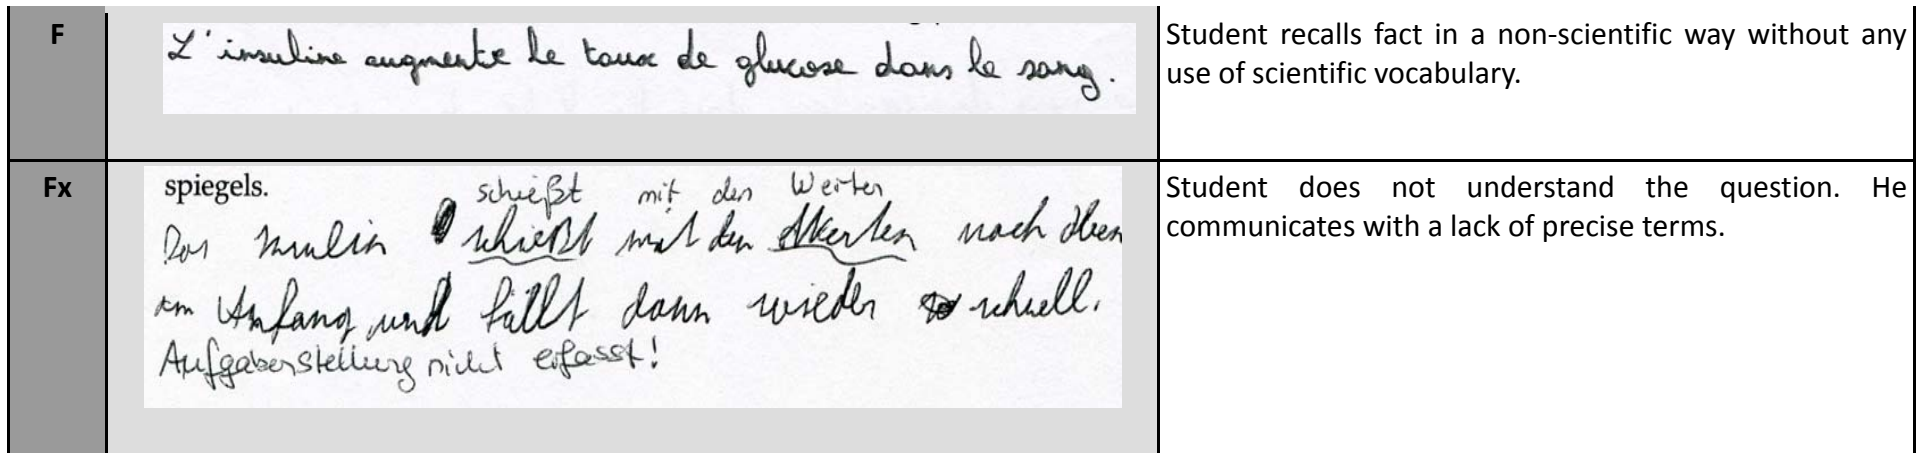 F
L'insuline augmente le taux de glucose dans le sang.
Student recalls fact in a non-scientific way without any
use of scientific vocabulary.
Fx
spiegels.
schießt mit den Werten
Das Insulin schießt mit den Werten nach oben
am Anfang und fällt dann wieder schnell.
Aufgabenstellung nicht erfasst!
Student does not understand the question. He
communicates with a lack of precise terms.